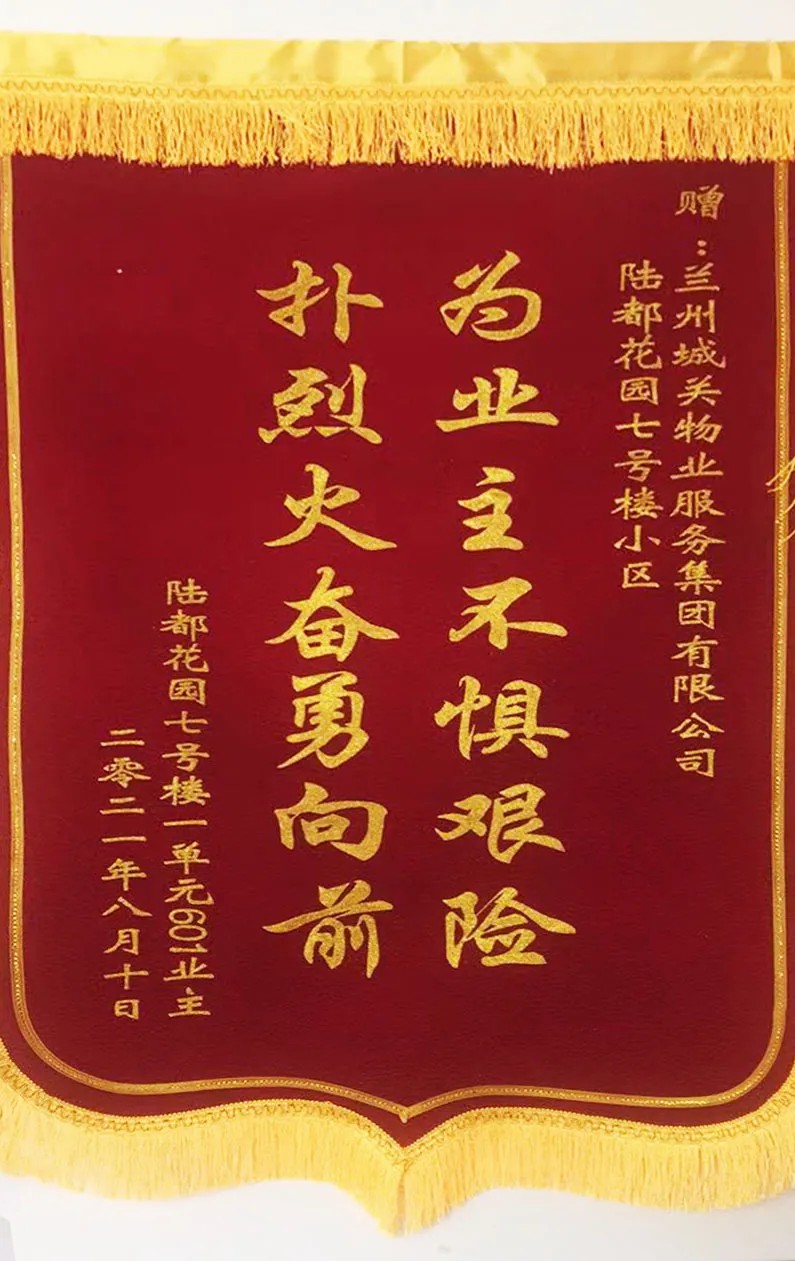 赠：兰州城关物业服务集团有限公司
陆都花园七号楼小区
为业主不惧艰险
扑烈火奋勇向前
陆都花园七号楼一单元601业主
二零二一年八月十日